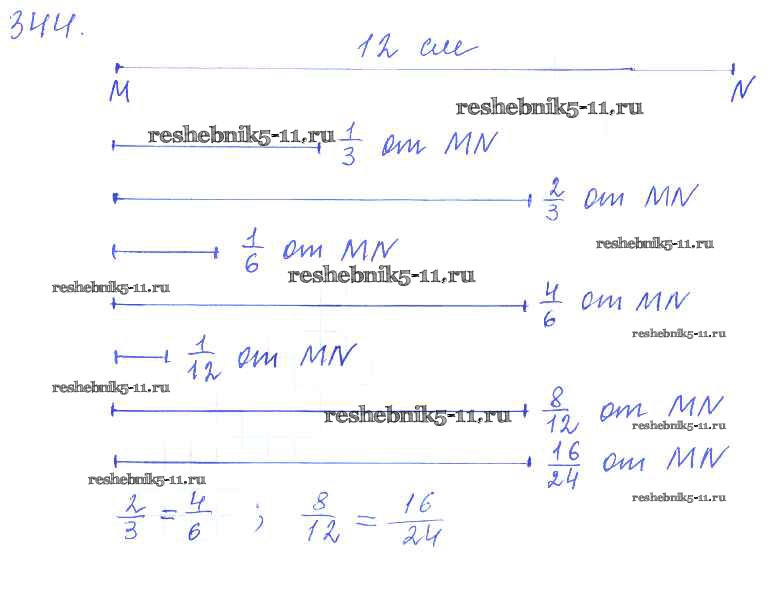 344.
12 см
M N
reshebnik5-11.ru
reshebnik5-11.ru 1/3 от MN
2/3 от MN
reshebnik5-11.ru
1/6 от MN
reshebnik5-11.ru
reshebnik5-11.ru
4/6 от MN
reshebnik5-11.ru
1/12 от MN
reshebnik5-11.ru
reshebnik5-11.ru 8/12 от MN
reshebnik5-11.ru
16/24 от MN
reshebnik5-11.ru
reshebnik5-11.ru
2/3 = 4/6 ; 8/12 = 16/24